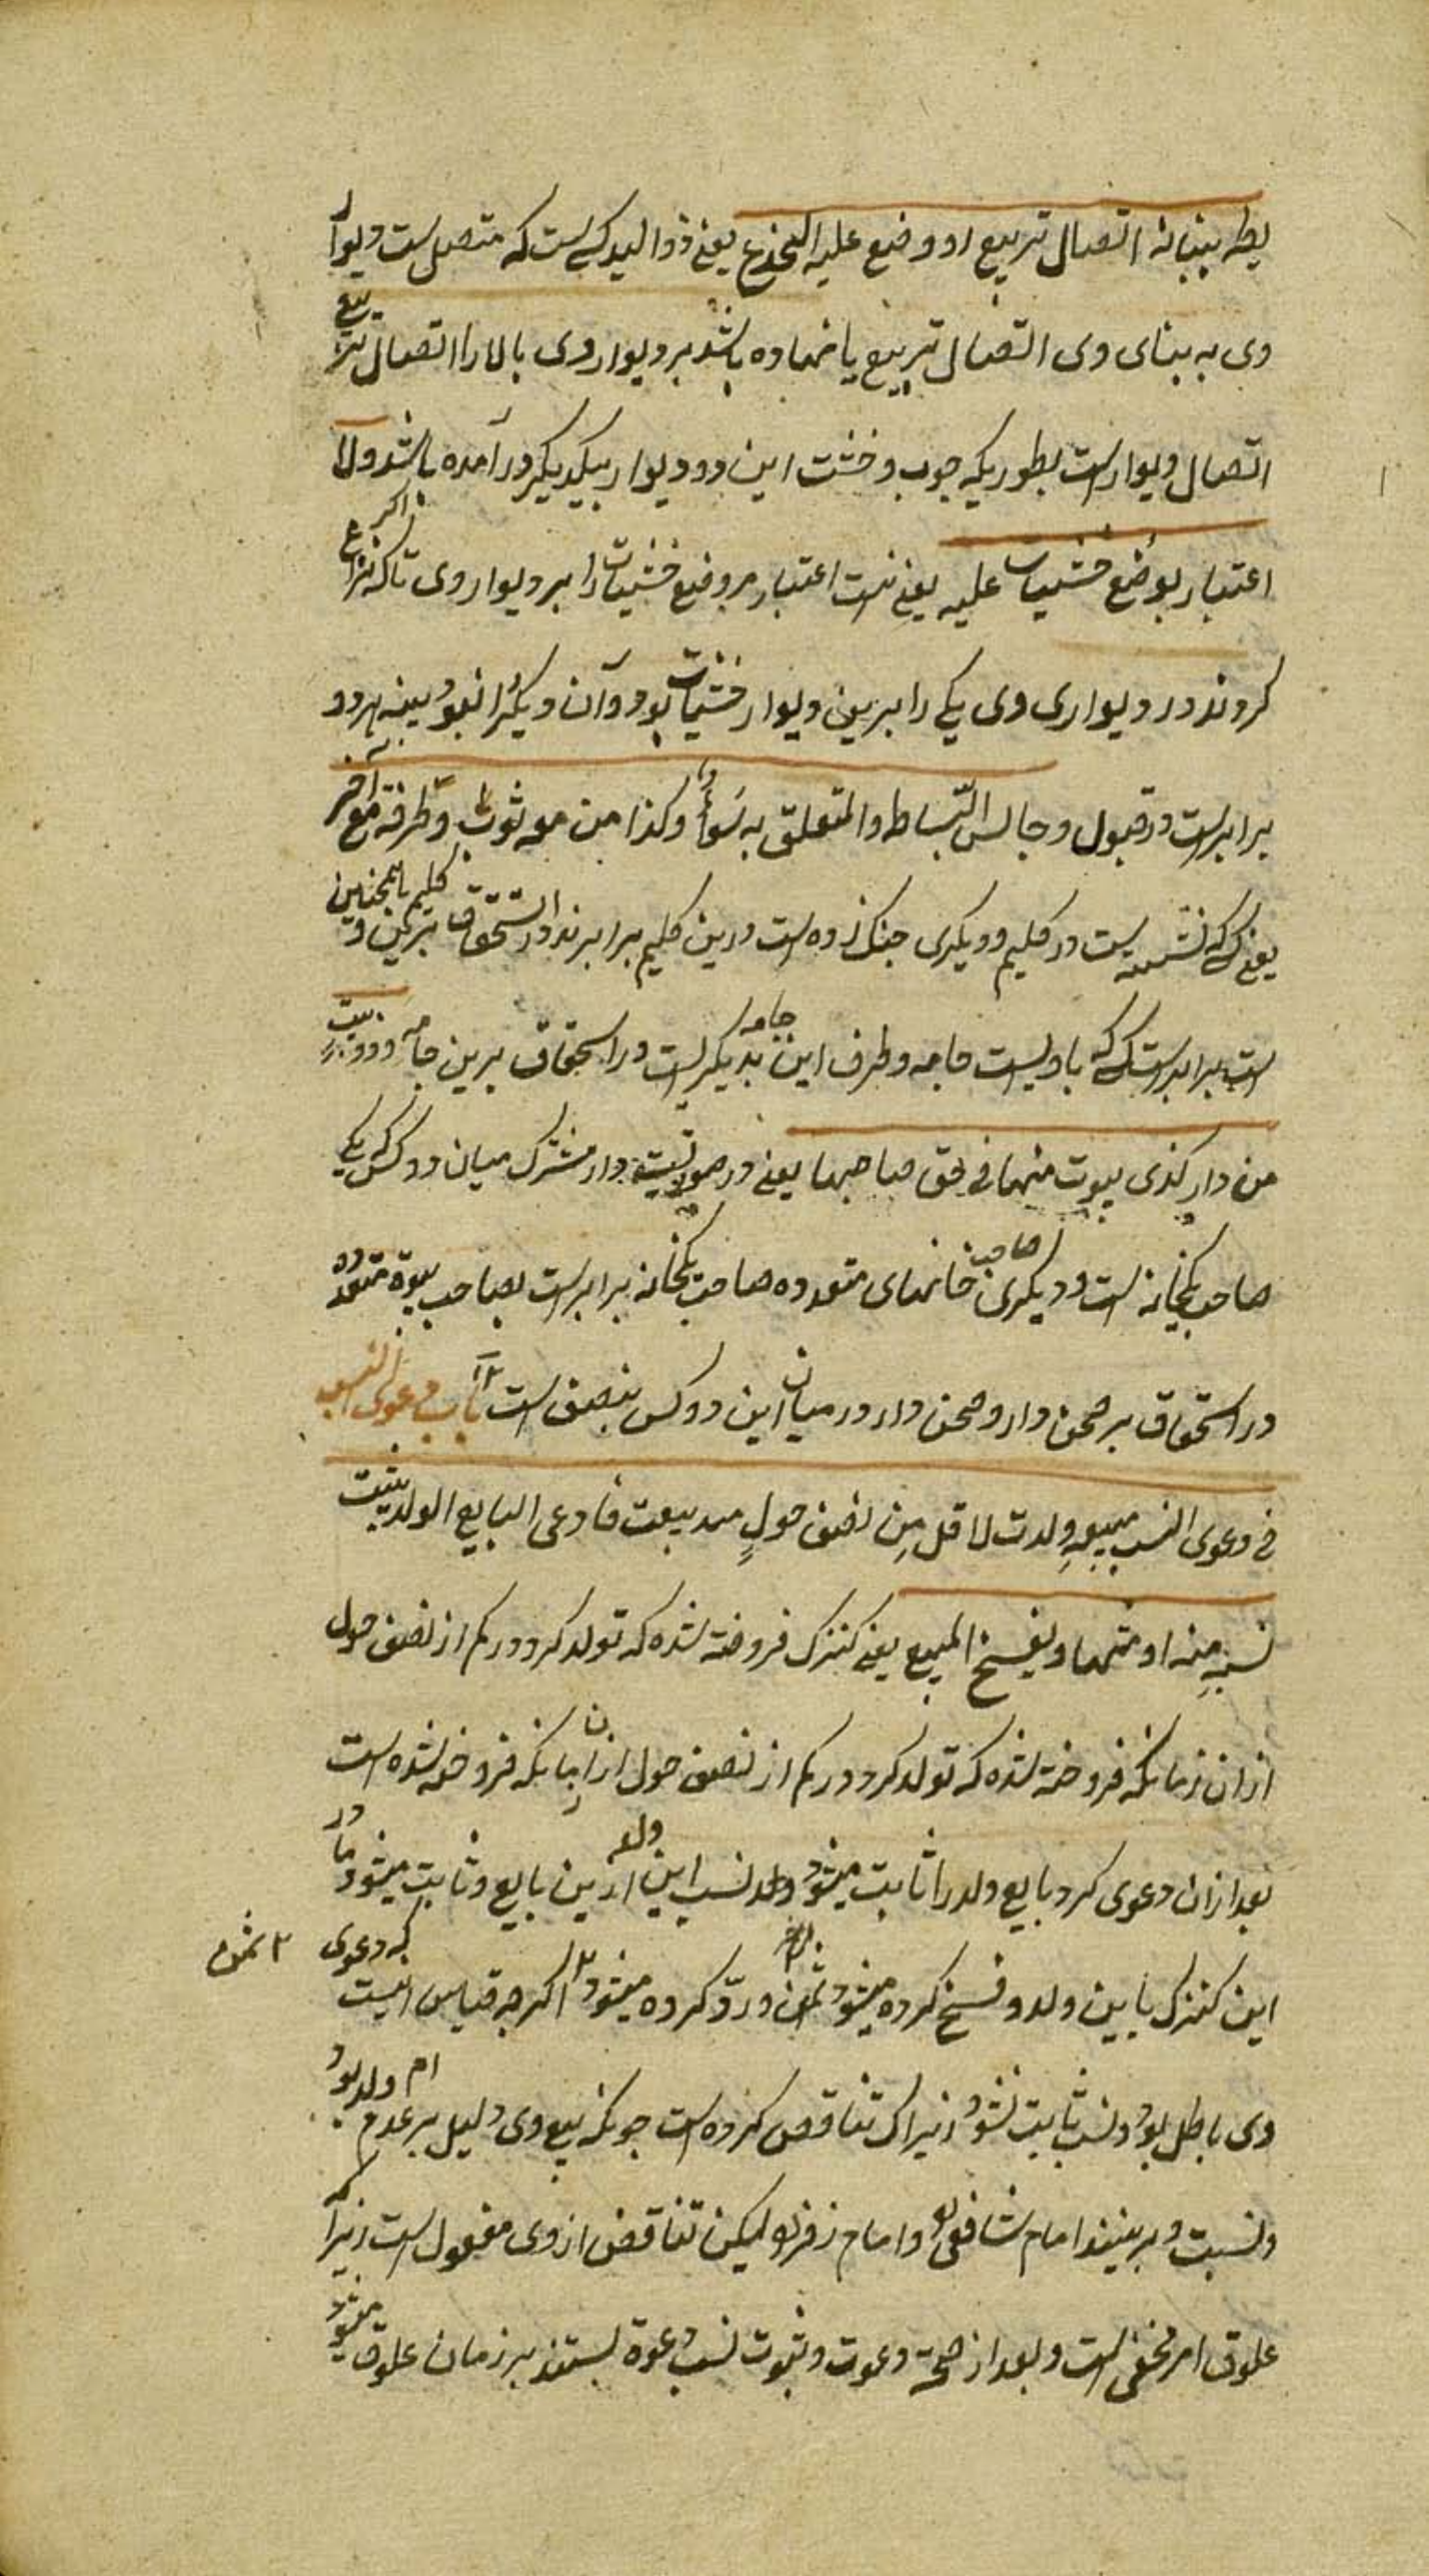 یطه ببنائه اتصال تربیع او وضع علیه الجذع یعنی ذوالید کسی است که متصل است دیوار
وی به بنای وی اتصال تربیع یا نهاده باشد بر دیوار وی بالار را اتصال تربیع
اتصال دیوار است بطوریکه چوب و خشت این دو دیوار بیکدیگر در آمده باشد ولا
اعتبار بوضع خشیبات علیه یعنی نیست اعتبار مر وضع خشیبات را بر دیوار وی تا که اگر نزاع
کردند در دیواری وی یکی را برین دیوار خشیبات بود و آن دیگر را نبود بینه هر دو
برابر است در قبول و جالس البساط والمتعلق به سواء وکذا من معه ثوب وطرفه مع آخر
یعنی کسی که نشسته است در کلیم و دیکری جنک زده است درین کلیم برابرند در استحقاق برین کلیم همچنین
است برابر است کسی که با ویست جامه و طرف این جامه بدیکریست در استحقاق برین جامه وذو بیت
من دار کذی بیوت منها فی حق صاحبها یعنی در صورتیست دار مشترک میان دو کس که یکی
صاحب یکخانه است و دیکری صاحب خانهای متعدده صاحب یکخانه برابر است بصاحب بیوت متعدده
در استحقاق بر صحن دار و صحن دار در میان این دو کس بنصف است باب دعوی النسب
فی دعوی النسب مبیعةٍ ولدت لاقل من نصف حولٍ مذ بیعت فادعی البایع الولد یثبت
نسبه منه او منها ویفسخ المبیع یعنی کنزک فروخته شده که تولد کرد در کم از نصف حول
ازان زمانکه فروخته شده که تولد کرد در کم از نصف حول ازان زمانکه فروخته شده است
بعد ازان دعوی کرد بایع ولد را ثابت میشود ولد نسب این ولد ازین بایع و ثابت میشود مادر
این کنزک باین ولد و فسخ کرده میشود ثمن و رد کرده میشود اکرچه قیاس اینست که دعوی
۲ ثمن
وی باطل بود و نسب ثابت نشود زیراک تناقض کرده است چونکه بیع وی دلیل بر عدم ام ولد بود
ونسبت و برینند امام شافعی و امام زفر لیکن تناقض از وی مقبول است زیرا که
علوق امر مخفی است و بعد از صحة دعوت و ثبوت نسب دعوة بستند بر زمان علوق میشود